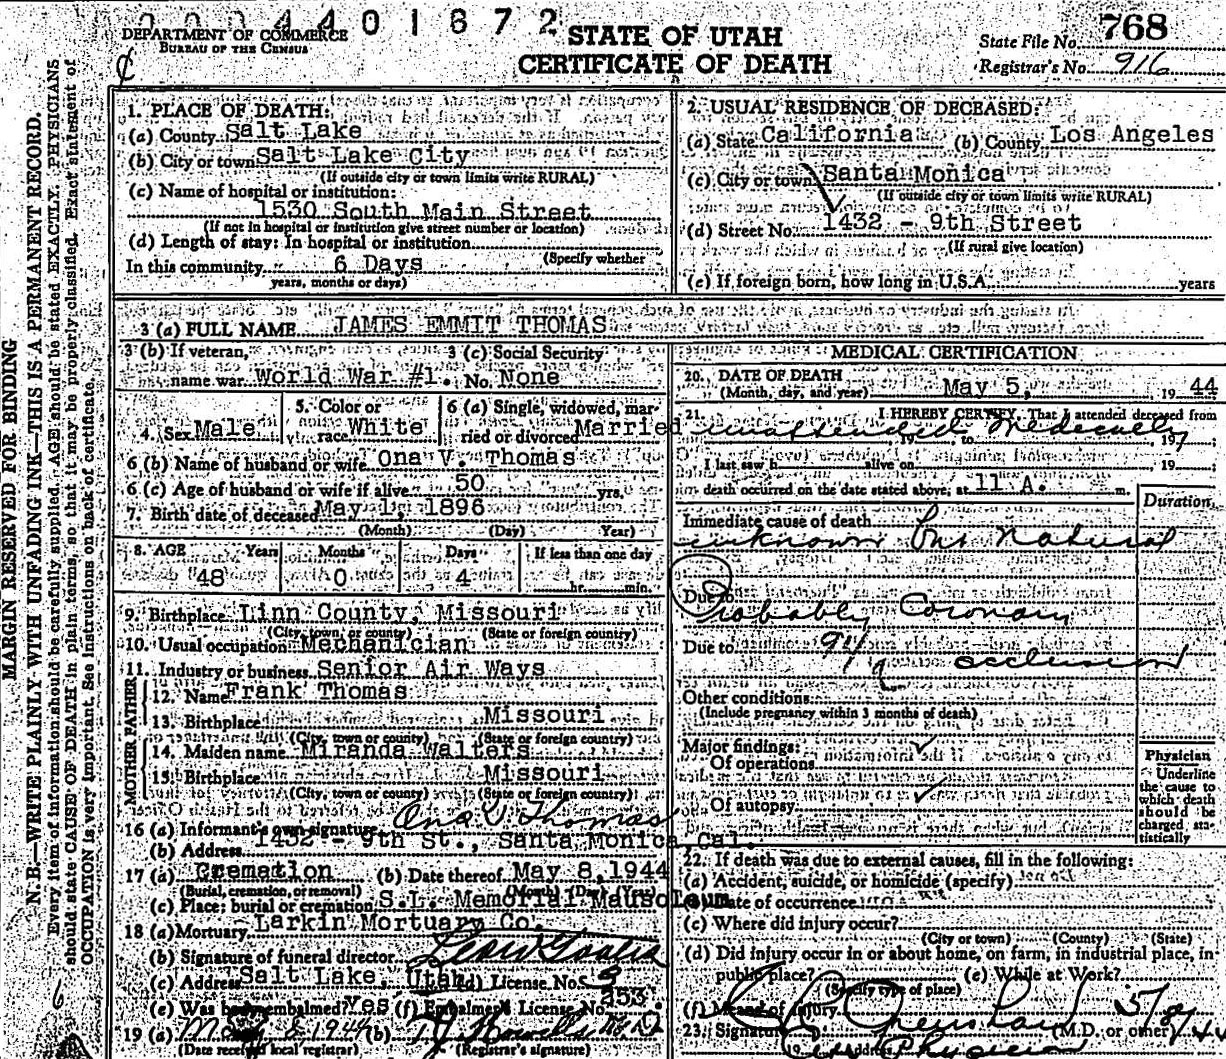 4401672
DEPARTMENT OF COMMERCE
BUREAU OF THE CENSUS
STATE OF UTAH
CERTIFICATE OF DEATH
State File No. 768
Registrar's No. 916
MARGIN RESERVED FOR BINDING
N. B.—WRITE PLAINLY WITH UNFADING INK—THIS IS A PERMANENT RECORD.
Every item of information should be carefully supplied. AGE should be stated EXACTLY. PHYSICIANS
should state CAUSE OF DEATH in plain terms, so that it may be properly classified. Exact statement of
OCCUPATION is very important. See instructions on back of certificate.
1. PLACE OF DEATH:
(a) County Salt Lake
(b) City or town Salt Lake City
(If outside city or town limits write RURAL)
(c) Name of hospital or institution:
1530 South Main Street
(If not in hospital or institution give street number or location)
(d) Length of stay: In hospital or institution
(Specify whether
In this community 6 Days
years, months or days)
2. USUAL RESIDENCE OF DECEASED:
(a) State California (b) County Los Angeles
(c) City or town Santa Monica
(If outside city or town limits write RURAL)
(d) Street No. 1432 - 9th Street
(If rural give location)
(e) If foreign born, how long in U.S.A. years
3 (a) FULL NAME JAMES EMMIT THOMAS
3 (b) If veteran, name war World War #1.
3 (c) Social Security No. None
4. Sex Male
5. Color or race White
6 (a) Single, widowed, married or divorced Married
6 (b) Name of husband or wife Ona V. Thomas
6 (c) Age of husband or wife if alive 50 yrs.
7. Birth date of deceased May 1, 1896
(Month) (Day) Year)
8. AGE Years Months Days If less than one day
48 0 4 hr. min.
9. Birthplace Linn County, Missouri
(City, town, or county) (State or foreign country)
10. Usual occupation Mechanician
11. Industry or business Senior Air Ways
FATHER
12. Name Frank Thomas
13. Birthplace Missouri
(City, town or county) (State or foreign country)
MOTHER
14. Maiden name Miranda Walters
15. Birthplace Missouri
(City, town or county) (State or foreign country)
16 (a) Informant's own signature Ona V Thomas
(b) Address 1432 - 9th St., Santa Monica, Cal.
17 (a) Cremation (b) Date thereof May 8, 1944
(Burial, cremation, or removal) (Month) (Day) (Year)
(c) Place: burial or cremation S.L. Memorial Mausoleum
18 (a) Mortuary Larkin Mortuary Co.
(b) Signature of funeral director
(c) Address Salt Lake, Utah (d) License No.
(e) Was body embalmed? yes (f) Embalmer's License No. 253
19 (a) May 8 1944 (b)
(Date received local registrar) (Registrar's signature)
MEDICAL CERTIFICATION
20. DATE OF DEATH
(Month, day, and year) May 5, 1944
21. I HEREBY CERTIFY, That I attended deceased from
unattended medically
19 to 19
I last saw h alive on 19
death occurred on the date stated above, at 11 A. m.
Duration
Immediate cause of death
unknown but natural
Due to
Probably Coronary
Due to 94 a occlusion
Other conditions
(Include pregnancy within 3 months of death)
Major findings:
Of operations
Of autopsy
Physician
Underline
the cause to
which death
should be
charged sta-
tistically
22. If death was due to external causes, fill in the following:
(a) Accident, suicide, or homicide (specify) no
(b) Date of occurrence
(c) Where did injury occur?
(City or town) (County) (State)
(d) Did injury occur in or about home, on farm, in industrial place, in
public place? (e) While at Work?
(Specify type of place)
(f) Means of injury
23. Signature (M.D. or other) 5/8/44
Address City Physician